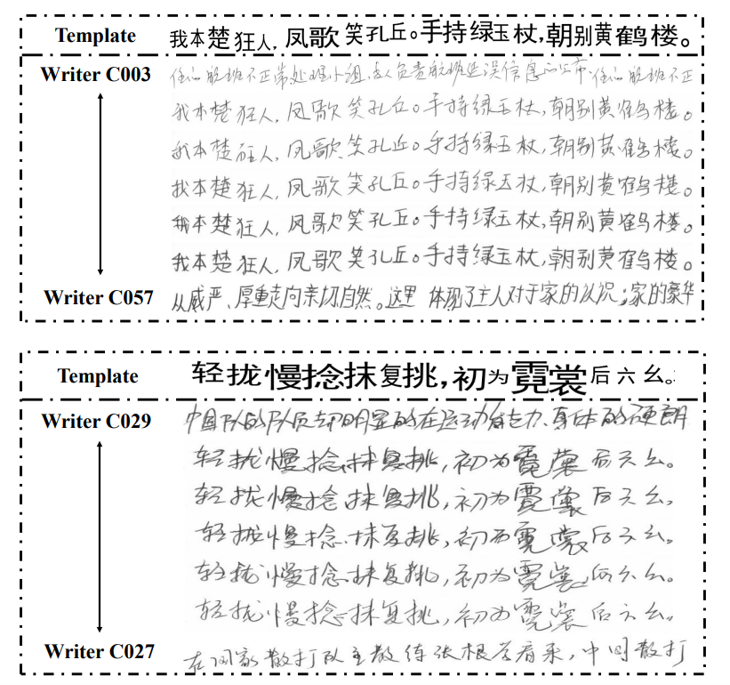 Template 我本楚狂人,凤歌笑孔丘。手持绿玉杖,朝别黄鹤楼。
Writer C003 航班不正常处理小组,人负责航班延误信息的公布 航班不正
我本楚狂人,凤歌笑孔丘。手持绿玉杖,朝别黄鹤楼。
我本楚狂人,凤歌笑孔丘。手持绿玉杖,朝别黄鹤楼。
我本楚狂人,凤歌笑孔丘。手持绿玉杖,朝别黄鹤楼。
我本楚狂人,凤歌笑孔丘。手持绿玉杖,朝别黄鹤楼。
我本楚狂人,凤歌笑孔丘。手持绿玉杖,朝别黄鹤楼。
Writer C057 从威严、厚重走向亲切自然。这里 体现了主人对于家的认识;家的豪华
Template 轻拢慢捻抹复挑,初为霓裳后六幺。
Writer C029 中国队的队员却明显的在运动能力、身体的硬朗
轻拢慢捻抹复挑,初为霓裳后六幺。
轻拢慢捻抹复挑,初为霓裳后六幺。
轻拢慢捻抹复挑,初为霓裳后六幺。
轻拢慢捻抹复挑,初为霓裳后六幺。
轻拢慢捻抹复挑,初为霓裳后六幺。
Writer C027 在国家散打队主教练张根学看来,中国散打